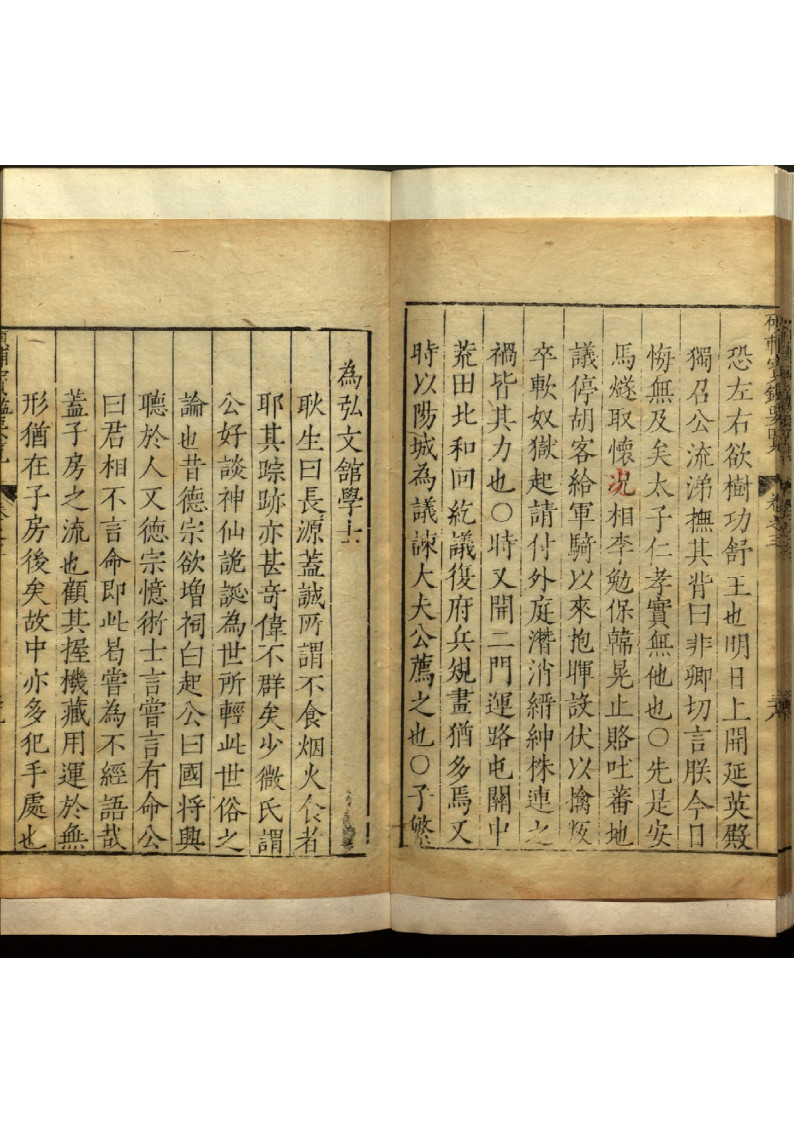 恐左右欲樹功舒王也明日上開延英殿
獨召公流涕撫其背曰非卿切言朕今日
悔無及矣太子仁孝實無他也○先是安
馬燧取懷况相李勉保韓晃止賂吐蕃地
議停胡客給軍騎以來抱暉設伏以擒叛
卒軟奴獄起請付外庭潛消縉紳株連之
禍皆其力也○時又開二門運路屯關中
荒田北和回紇議復府兵規畫猶多焉又
時以陽城為議諫大夫公薦之也○子繁
為弘文館學士
耿生曰長源蓋誠所謂不食烟火食者
耶其踪跡亦甚奇偉不群矣少微氏謂
公好談神仙詭誕為世所輕此世俗之
論也昔德宗欲增祠白起公曰國将興
聽於人又德宗憶術士言嘗言有命公
曰君相不言命即此曷嘗為不經語哉
蓋子房之流也顧其握機藏用運於無
形猶在子房後矣故中亦多犯手處也